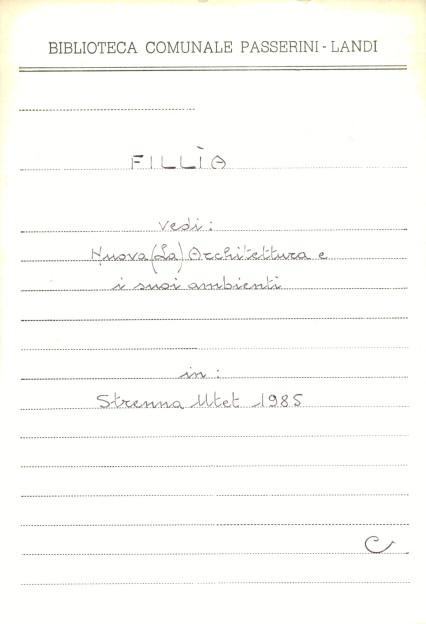 BIBLIOTECA COMUNALE PASSERINI - LANDI
FILLÌA
vedi:
Nuova (La) Architettura e
i suoi ambienti
in:
Strenna Utet 1985
C